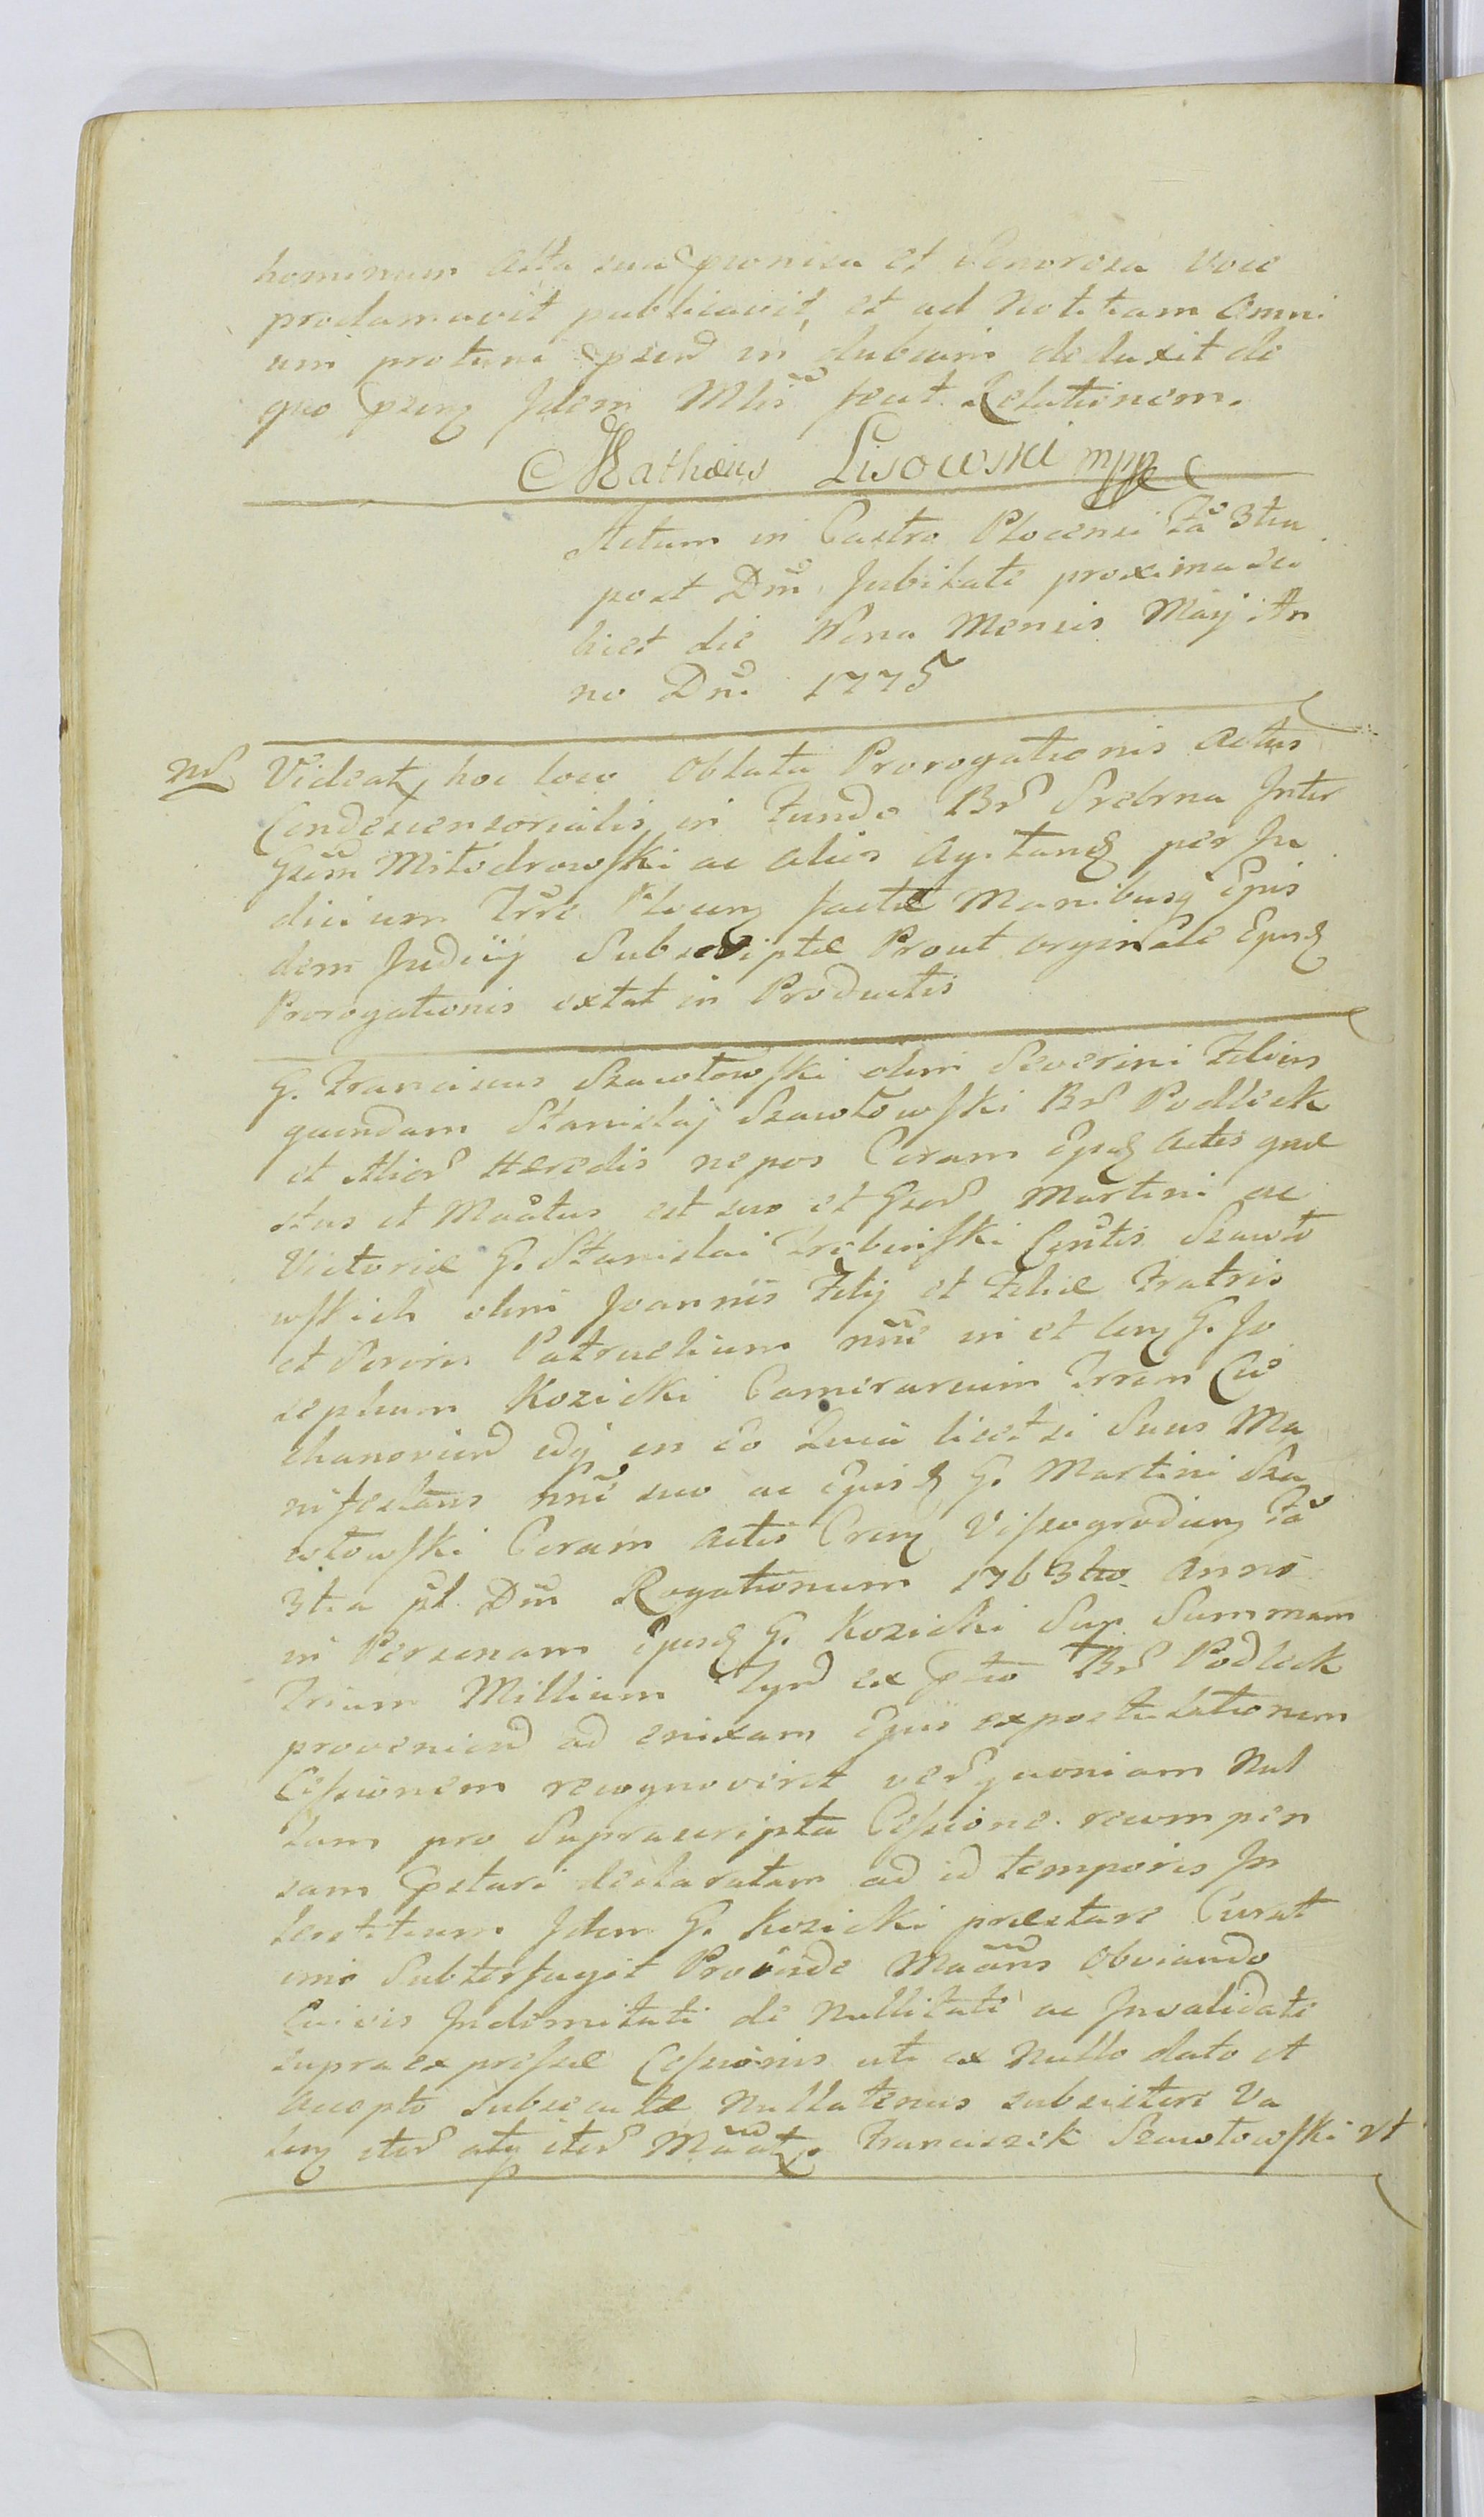 hominum alta sua pronisa et Sonorosa voce
proclamavit publicavit, et ad Notitiam Omni
um protuni in dubium deduxit de
quo Idem fecit Relationem.
Mathæus Lisowski mpp
Actum in Castro Plocensi Fa 3tia
post Dm̃ Jubilate proxima sci
licet die Nona Mensis Maij An
no Dn̄i 1775
Nd Videat hoc loco Oblata Prorogationis Actus
Condescensorialis in Fundo Br̃ Srebrna Inter
Gsm̃ Miłodrowski ac alios agitand per Ju
dicium Trr̃e Plocen factæ Manibusq Ejus
dem Judicij Subscriptæ Prout orginale Ejusd
Prorogationis extat in Productis
G. Franciscus Szawłowski olim Severini Filius
quondam Stanislaj Szawłowski Br̃ Podleck
et Alior̃ Hæredis nepos Coram Ejusd actis que
stus et Maātus est suo et Gsor̃ Martini ac
Victoriæ G. Stanislai Trebinski Csrtis Szawło
wskich olim Joannis Filij et Filiæ Fratris
et Sororis Patruelium nn̄e in et Cen G. Jo
sephum Kozicki Camerarium Trren Cie
chanovien̄ idq in eo Quia licet si Suus Ma
nifestans nn̄e suo ac Ejusd G. Martini Sza
włowski Coram Actis Cren Vissogrodien Fa
3tia pt Dm̃ Rogationum 1763tio Anno
in Personam Ejusd G. Kozicki Sup Summam
Trium Millium ex Br̃ Podleck
provenien̄ ad enixam Ejus expostulationem
Cessionem recognoviret ver̃ quoniam Nul
lam pro Suprascripta Cessione recompen
sam declaratam ad id temporis In
Idem G. Kozicki præstare Curat
imo Subterfugit Proinde Maāns Obviando
Cuivis Indemnitati de Nullitate ac Invalidate
supra expressæ Cessionis uti ex Nullo dato et
accepto subsecutæ Nullatenus subsistere Va
len iter̃ atq iter̃ Māat. Franciszek Szawłowski